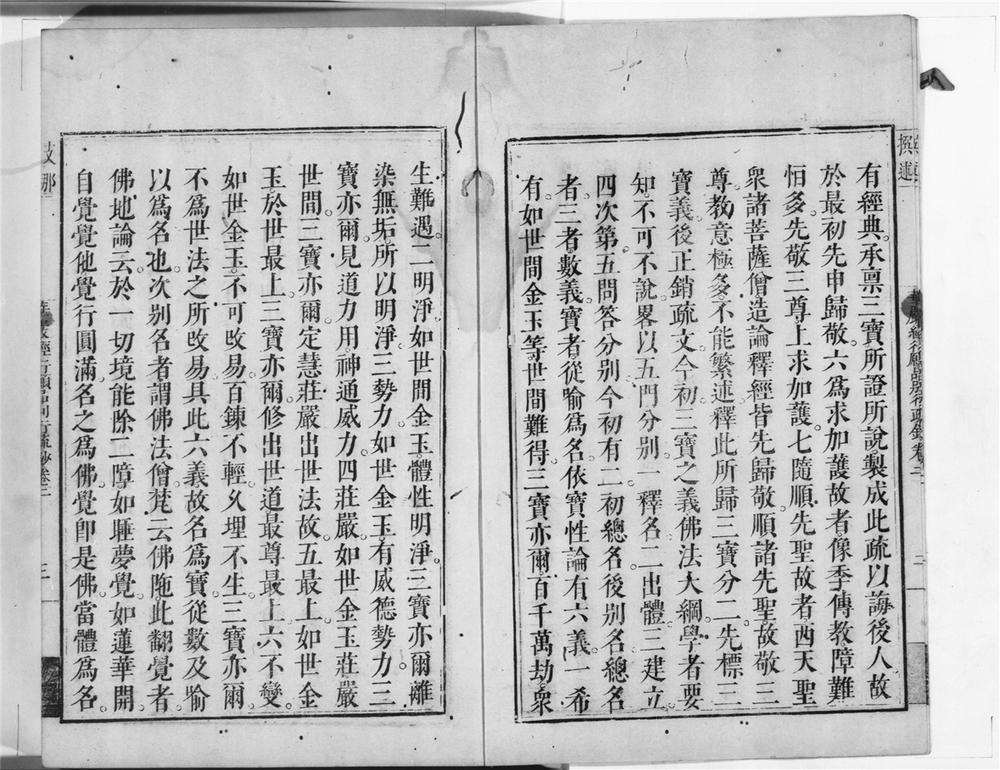 有經典承禀三寶所證所說製成此疏以誨後人故
於最初先申歸敬六爲求加護故者像季傳教障難
怕多先敬三尊上求加護七隨順先聖故者西天聖
衆諸菩薩僧造論釋經皆先歸敬順諸先聖故敬三
尊教意極多不能繁述釋此所歸三寶分二先標三
寶義後正銷疏文今初三寶之義佛法大綱學者要
知不可不說畧以五門分別一釋名二出體三建立
四次第五問答分別今初有二初總名後別名總名
者三者數義寶者從喻爲名依寶性論有六義一希
有如世間金玉等世間難得三寶亦爾百千萬劫衆
生難遇二明淨如世間金玉體性明淨三寶亦爾離
染無垢所以明淨三勢力如世金玉有威德勢力三
寶亦爾見道力用神通威力四莊嚴如世金玉莊嚴
世間三寶亦爾定慧莊嚴出世法故五最上如世金
玉於世最上三寶亦爾修出世道最尊最上六不變
如世金玉不可改易百鍊不輕久埋不生三寶亦爾
不爲世法之所改易具此六義故名爲寶從數及喻
以爲名也次別名者謂佛法僧梵云佛陁此翻覺者
佛地論云於一切境能除二障如睡夢覺如蓮華開
自覺覺他覺行圓滿名之爲佛覺卽是佛當體爲名